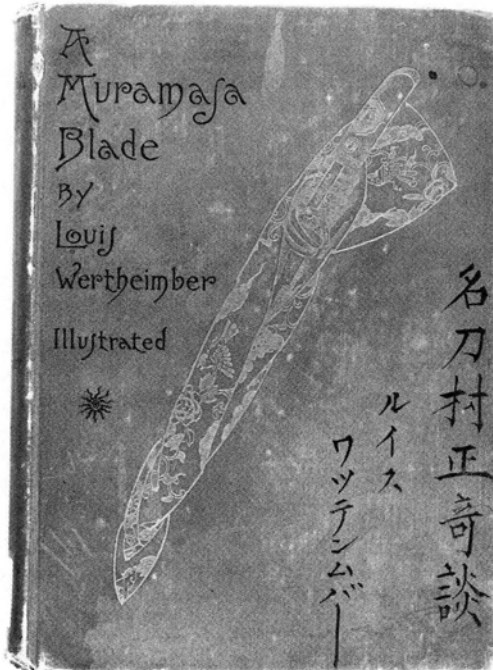 A
Muramasa
Blade
By
Louis
Wertheimber
Illustrated
名刀村正奇談
ルイス
ワツテンムバー